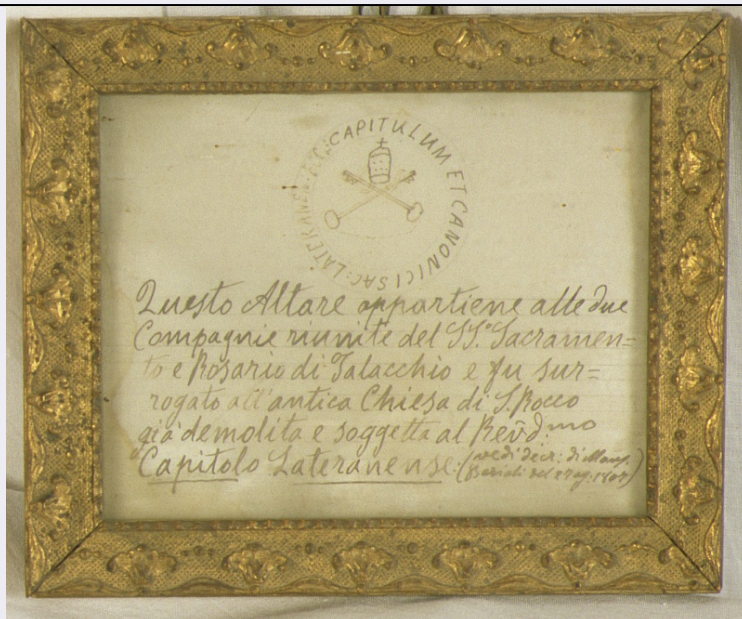 CAPITULUM ET CANONICI SAC: LATERANEN
Questo Altare appartiene alle due
Compagnie riunite del SS.º Sacramen=
to e Rosario di Talacchio e fu sur=
rogato all'antica Chiesa di S. Rocco
già demolita e soggetta al Revd:mo
Capitolo Lateranense. (vedi decr: di